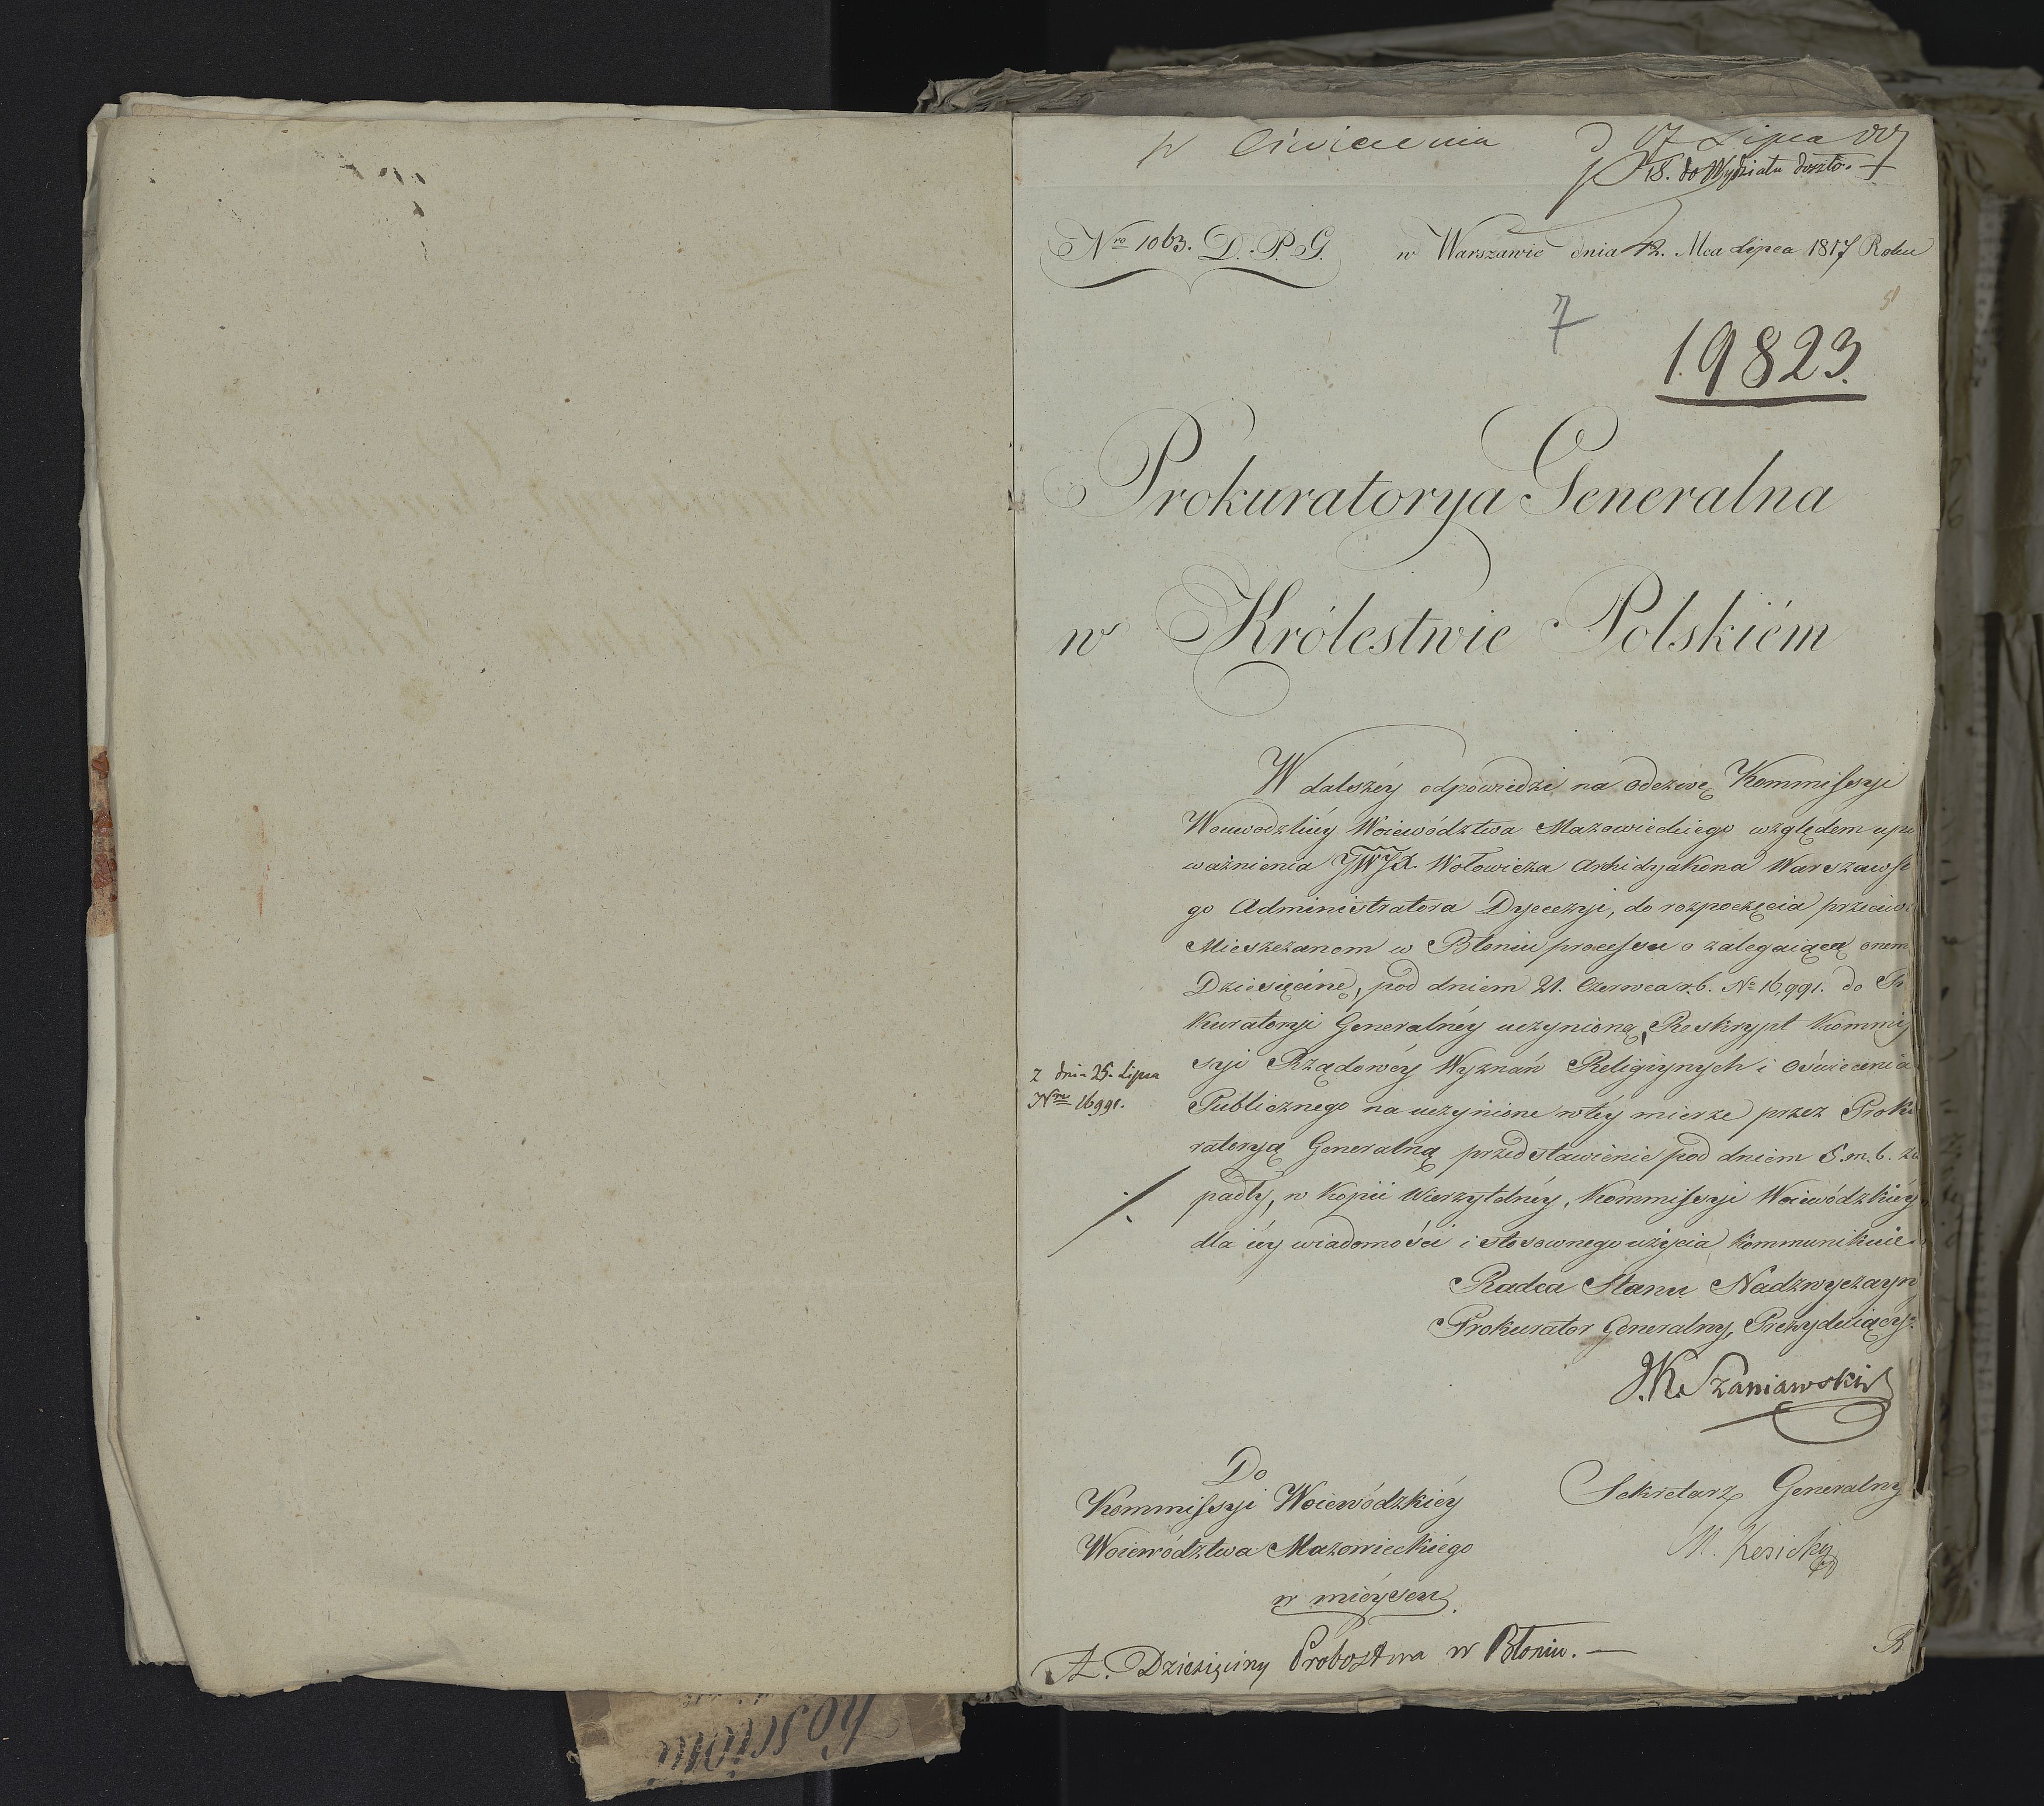 W Oświecenia d 17 Lipca 817
18. do Wydziału doszło.
Nro 1063. D. P. G. w Warszawie dnia 12. Mca Lipca 1817 Roku
7
19823.
Prokuratorya Generalna
w Królestwie Polskiém
W dalszéy odpowiedzi na odezwę Kommissyi
Woiewodzkiéy Woiewództwa Mazowieckiego względem upo
ważnienia JWJX. Wołowicza Archidyakona Warszawsk
go Administratora Dyecezyi, do rozpoczęcia przeciw
Mieszczanom w Błoniu processu o zalegaiącą onem
Dziesięcinę, pod dniem 21. Czerwca r.b. No 16,991. do Pr
kuratoryi Generalnéy uczynioną, Reskrypt Kommis
syi Rządowéy Wyznań Religiynych i Oświecenia
z dnia 25. Lipca
Nro 16991.
Publicznego na uczynione w téy mierze przez Proku
ratoryą Generalną przedstawienie pod dniem 5. m. b. za
padły, w Kopii Wierzytelnéy, Kommissyi Woiewódzkiéy
dla iéy wiadomości i stosownego użycia kommunikuie.
Radca Stanu Nadzwyczayn
Prokurator Generalny, Prezyduiący.
J.K. Szaniawski
Do
Kommissyi Woiewódzkiéy
Sekretarz Generalny
Woiewództwa Mazowieckiego
w mieyscu
Dziesięciny Probostwa w Błoniu. —